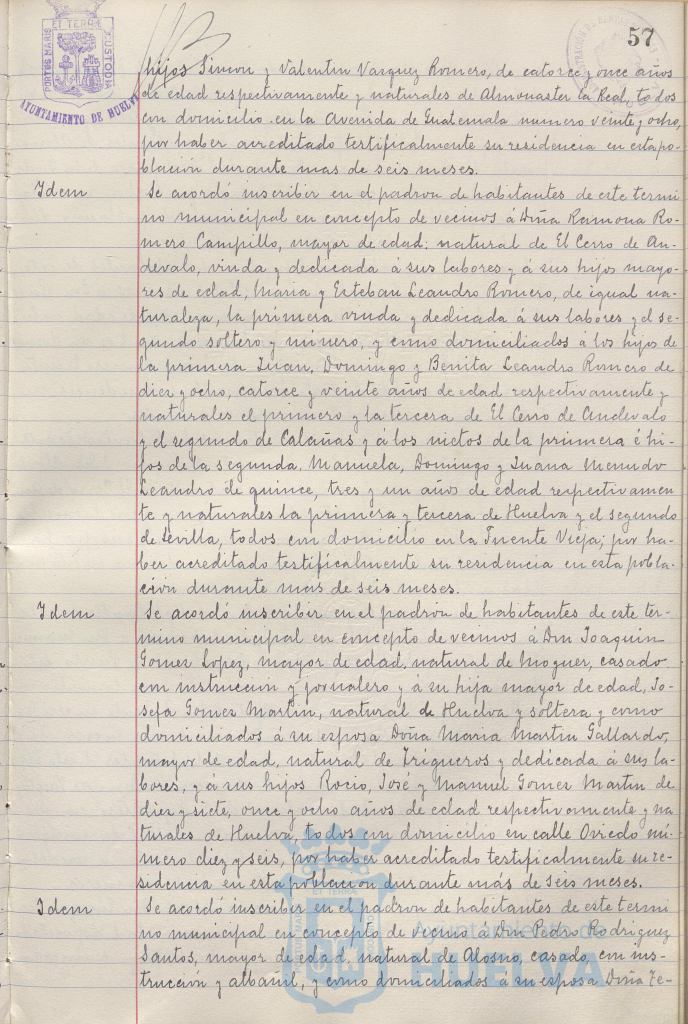 57
PORTUS MARIS ET TERRÆ CUSTODIA
AYUNTAMIENTO DE HUELVA
hijos Simon y Valentin Vazquez Romero, de catorce y once años
de edad respectivamente y naturales de Almonaster la Real, todos
con domicilio en la Avenida de Guatemala numero veinte y ocho,
por haber acreditado testificalmente su residencia en esta po-
blación durante mas de seis meses.
Idem
Se acordó inscribir en el padron de habitantes de este termi
no municipal en concepto de vecinos á Doña Ramona Ro-
mero Campillo, mayor de edad, natural de El Cerro de An-
devalo, viuda y dedicada á sus labores y á sus hijos mayo-
res de edad, Maria y Esteban Leandro Romero, de igual na-
turaleza, la primera viuda y dedicada á sus labores y el se-
gundo soltero y minero, y como domiciliados á los hijos de
la primera Juan, Domingo y Benita Leandro Romero de
diez y ocho, catorce y veinte años de edad respectivamente y
naturales el primero y la tercera de El Cerro de Andevalo
y el segundo de Calañas y á los nietos de la primera é hi-
jos de la segunda, Manuela, Domingo y Juana Menudo
Leandro de quince, tres y un años de edad respectivamen-
te y naturales la primera y tercera de Huelva y el segundo
de Sevilla, todos con domicilio en la Fuente Vieja; por ha-
ber acreditado testificalmente su residencia en esta pobla-
ción durante mas de seis meses.
Idem
Se acordó inscribir en el padrón de habitantes de este tér-
mino municipal en concepto de vecinos á Don Joaquin
Gomez Lopez, mayor de edad, natural de Moguer, casado
con instrucción y jornalero y á su hija mayor de edad, Jo-
sefa Gomez Martin, natural de Huelva y soltera y como
domiciliados á su esposa Doña Maria Martin Gallardo,
mayor de edad, natural de Trigueros y dedicada á sus la-
bores, y á sus hijos Rocio, José y Manuel Gomez Martin de
diez y siete, once y ocho años de edad respectivamente y na-
turales de Huelva, todos con domicilio en calle Oviedo nú-
mero diez y seis, por haber acreditado testificalmente su re-
sidencia en esta poblacion durante más de seis meses.
Idem
Se acordó inscribir en el padron de habitantes de este termi
no municipal en concepto de vecino a Don Pedro Rodriguez
Santos, mayor de edad, natural de Alosno, casado, con ins-
trucción y albañil, y como domiciliados á su esposa Doña Te-
Ayuntamiento de
HUELVA